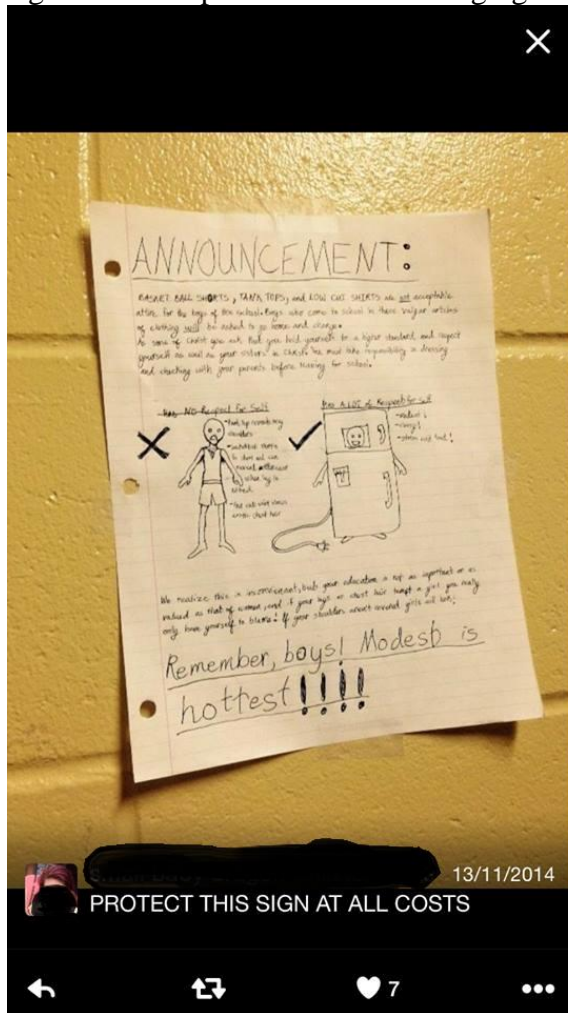 ANNOUNCEMENT:
BASKET BALL SHORTS, TANK TOPS, and LOW CUT SHIRTS are not acceptable
attire for the boys of this school. Boys who come to school in these vulgar articles
of clothing will be asked to go home and change.
As sons of Christ you ask that you hold yourself to a higher standard, and respect
yourself as well as your sisters in Christ. We must take responsibility in dressing
and checking with your parents before leaving for school.
Has NO Respect For Self
Has A LOT of Respect for Self
shoulders
chest hair
We realize this is inconvenient, but your education is not as important or as
valued as that of women, and if your legs or chest hair tempt a girl you really
only have yourself to blame! If your shoulders aren't covered girls will
Remember, boys! Modest is
hottest!!!!
13/11/2014
PROTECT THIS SIGN AT ALL COSTS
7